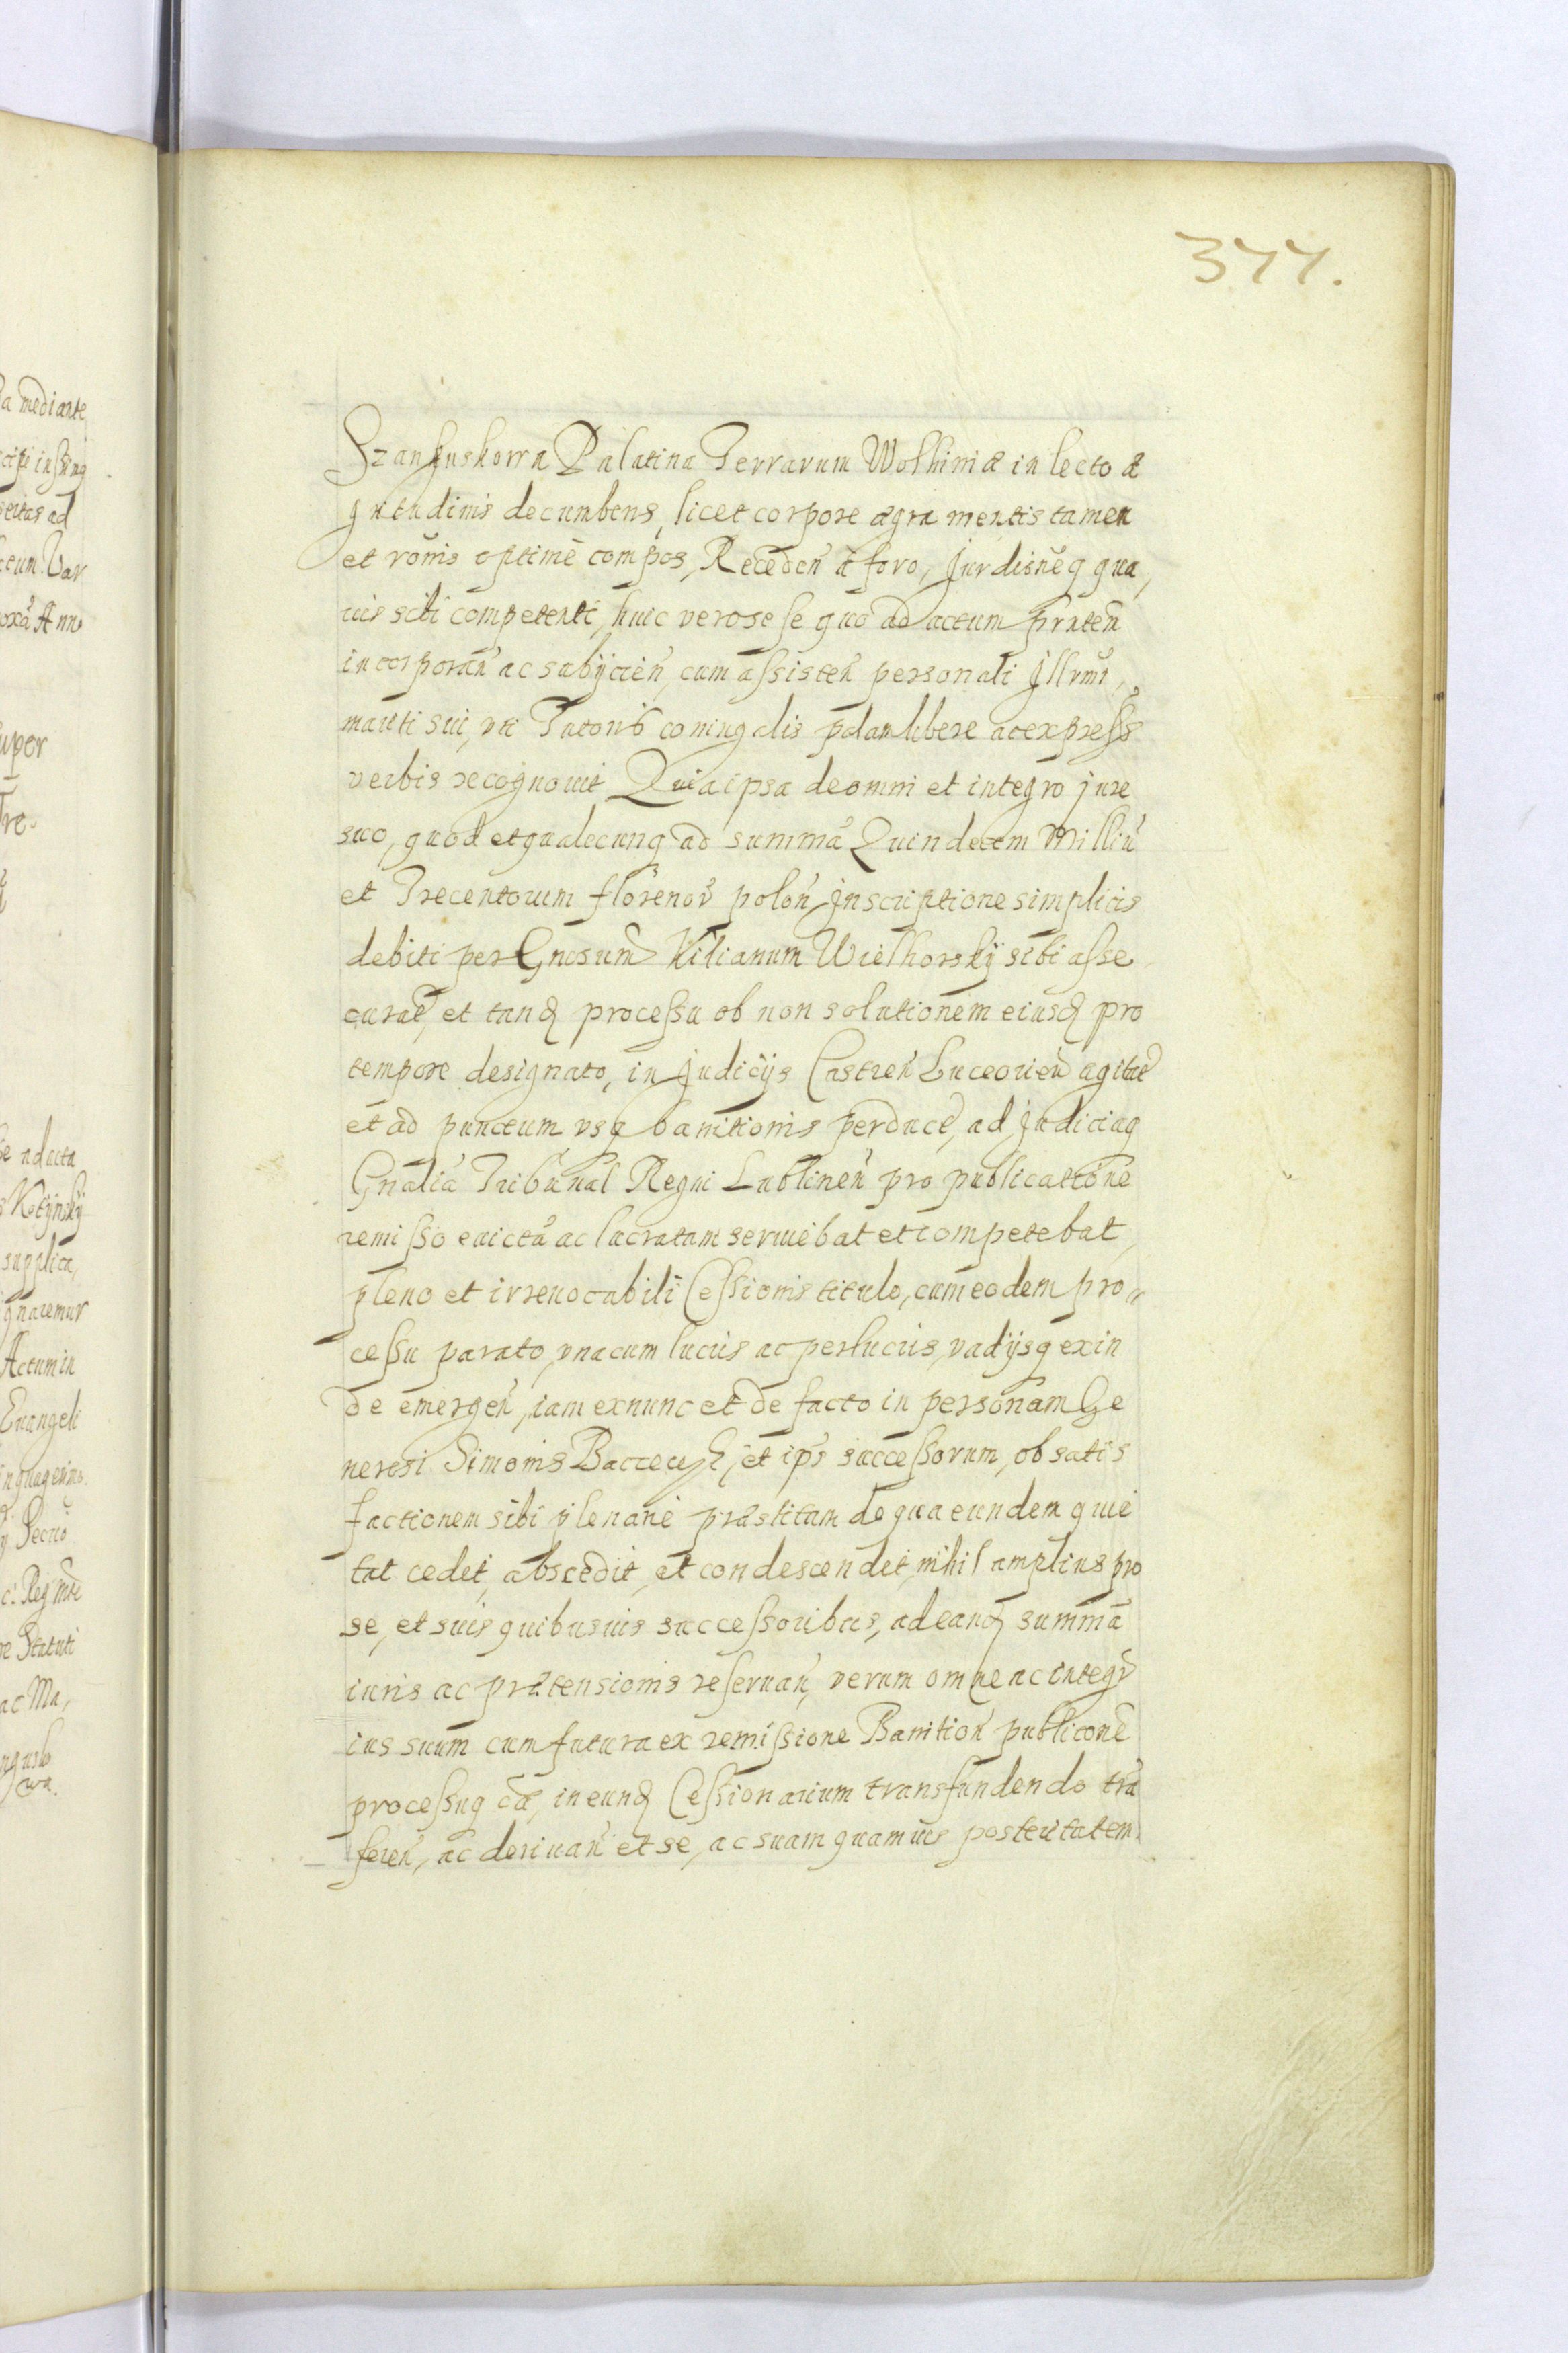 a mediante
seitas ad
upor
se ad acta
supplica,
gnaremur
Actum in
Euangeli
e Statuti
ac Ma,
377.
Szanguskowa Palatina Terrarum Wolhiniæ in lecto æ
gritudinis decumbens, licet corpore ægra mentis tamen
et rōnis optimè compos, Receden̄ à foro, Jurdisnēq̄ qua,
uis sibi competenti, huic vero sese quo ad actum prnten̄
incorporan̄ ac subijcien̄, cum assisten̄ personali Jllrmi,
mariti sui, vti Tutoris coniugalis pdam libere ac express̄
verbis recognouit Quia ipsa de omni et integro jure
suo, quod et qualecunq̄ ad summā Quindecem Milliū
et Trecentorum florenor̄ polon̄ jnscriptione simplicis
debiti per Gnosum Kilianum Wielhorskÿ sibi asse
curat̄, et tanq̄ processu ob non solutionem eiusd̄ pro
tempore designato, in judicijs Castren̄ Luceorien̄ agitat̄
et ad punctum vsq̄ banitionis perduct̄, ad judiciaq̄
Gnālia Tribunal Regni Lublinen̄ pro publicattone
remisso euictū ac lucratam seruiebat et competebat,
pleno et irreuocabili Cessionis titulo, cum eodem pro„
cessu parato, vna cum lucris ac perlucris, vadijsq̄ exin
de emergen̄, iam exnunc et de facto in personam Ge
nerosi Simonis et ips̄ successorum, ob satis
factionem sibi plenariè præstitam de qua eundem quie
tat cedet, abscedit, et condescendet, nihil amplius pro
se, et suis quibusuis successoribus, ad eand̄ summā
iuris ac prætensionis reseruan̄, verum omne ac integr̄
ius suum cum futura ex remissione Banition̄ publicōne
processuq̄ cā, in eund̄ Cessionarium transfundendo trā
feren̄, ac deriuan̄ et se, ac suam quamuis posteritatem.